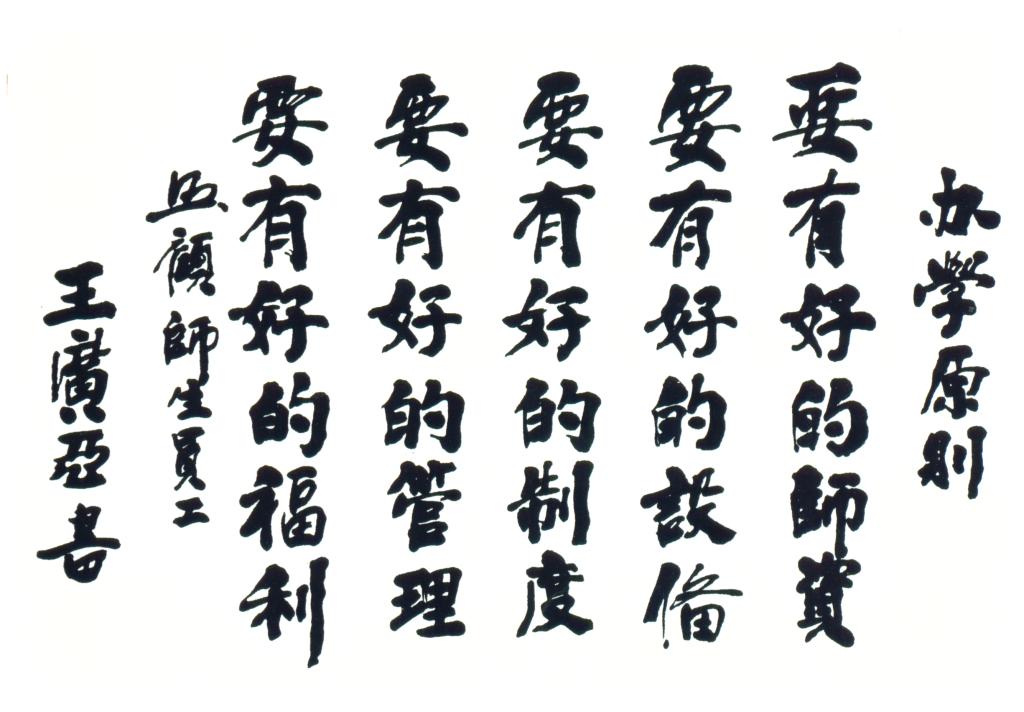 办學原则
要有好的師資
要有好的設備
要有好的制度
要有好的管理
要有好的福利
照顧師生員工
王廣亞書